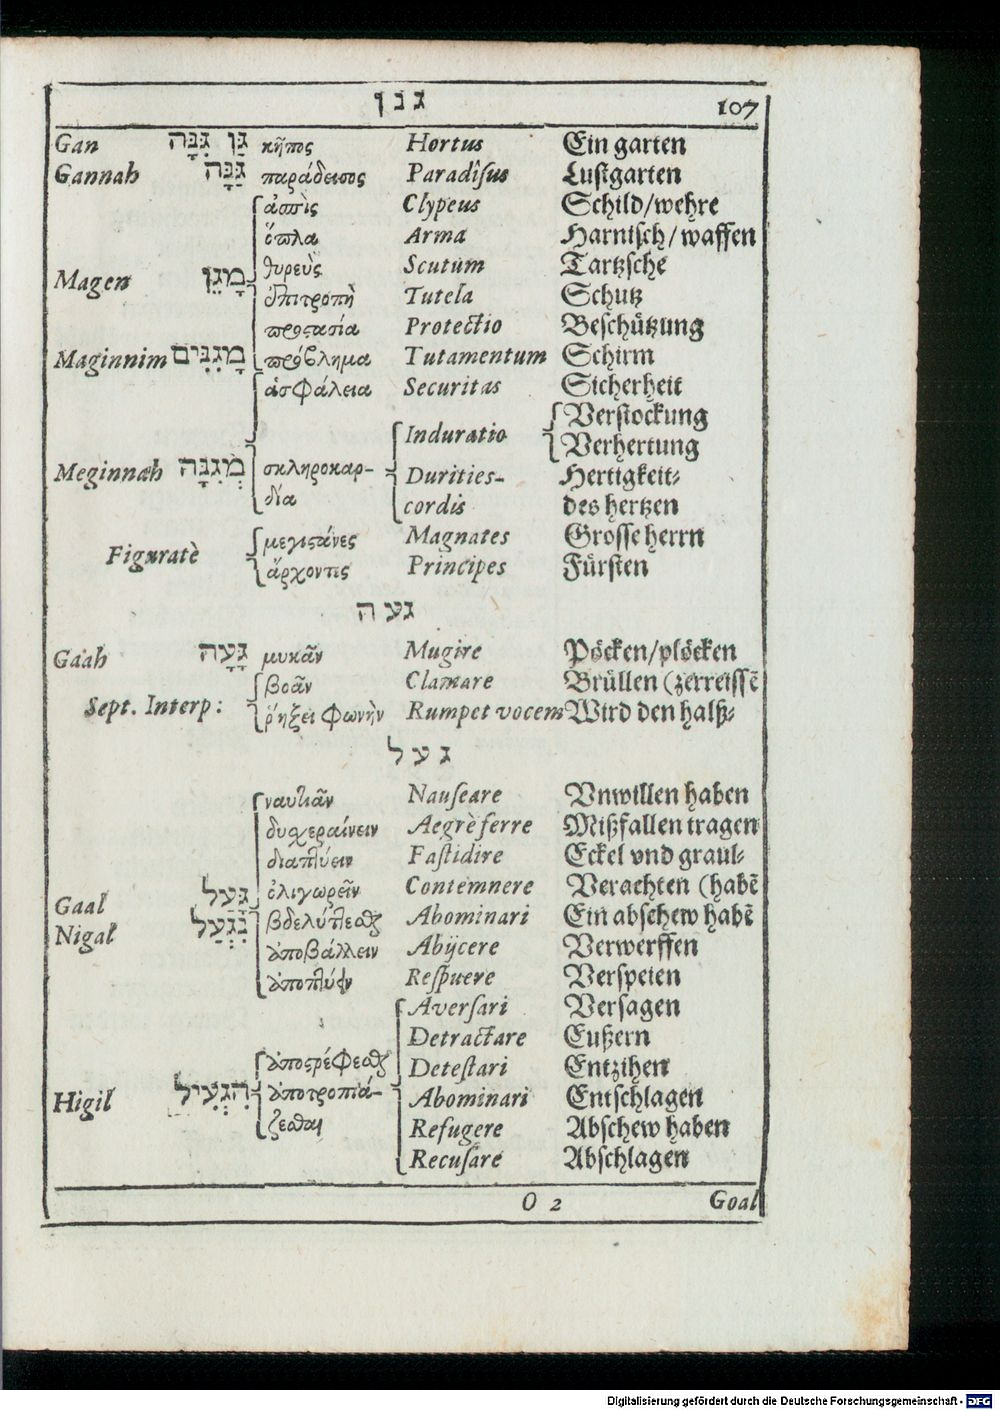 גנן 107
Gan גַּן גִּנָּה κῆπος Hortus Ein garten
Gannah גַּנָּה παράδεισος Paradîsus Lustgarten
ἀσπὶς Clypeus Schild/wehre
ὅπλα Arma Harnisch/waffen
θυρεὺς Scutum Tartzsche
Magen מָגֵן ἐπιτροπὴ Tutela Schutz
προστασία Protectio Beschützung
Maginnim מָגִנִּים πρόβλημα Tutamentum Schirm
ἀσφάλεια Securitas Sicherheit
Verstockung
Induratio Verhertung
Meginnah מְגִנָּה σκληροκαρ- Durities- Hertigkeit-
δία cordis des hertzen
μεγιστάνες Magnates Grosse herrn
Figuratè ἄρχοντις Principes Fürsten
געה
Gaah גָּעָה μυκᾶν Mugire Pöcken/plöcken
βοᾶν Clamare Brüllen (zerreissē
Sept. Interp: ῥήξει φωνὴν Rumpet vocem Wird den halß-
געל
ναυτιᾶν Nauseare Vnwillen haben
δυχεραίνειν Aegrè ferre Mißfallen tragen
διαπτύειν Fastidire Eckel vnd graul-
ὀλιγωρεῖν Contemnere Verachten (habē
Gaal גָּעַל βδελύττεσθαι Abominari Ein abschew habē
Nigal נִגְעַל ἀποβάλλειν Abijcere Verwerffen
ἀποπτύειν Respuere Verspeien
Aversari Versagen
Detractare Eußern
ἀποστρέφεσθαι Detestari Entzihen
Higil הִגְעִיל ἀποτροπιά- Abominari Entschlagen
ζεσθαι Refugere Abschew haben
Recusare Abschlagen
O 2 Goal
Digitalisierung gefördert durch die Deutsche Forschungsgemeinschaft - DFG